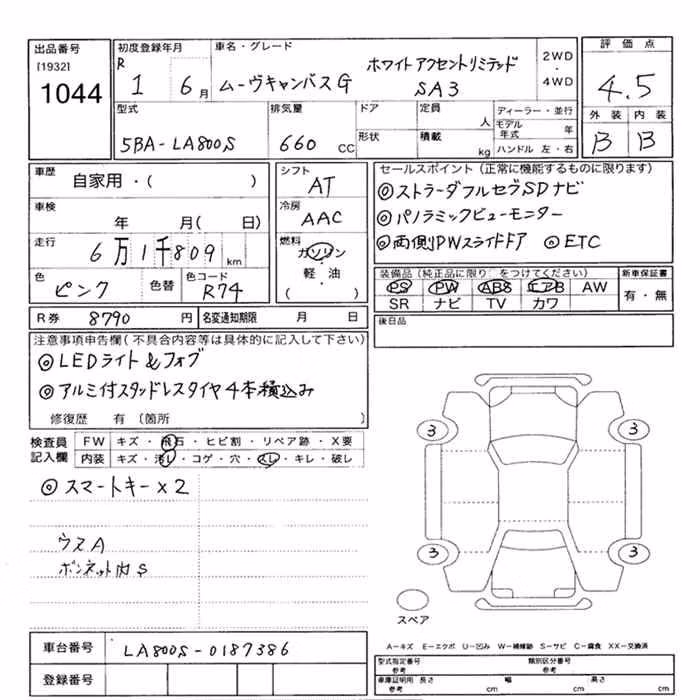 出品番号 初度登録年月 車名・グレード 評価点
[1932] R 1 6月 ムーヴキャンバスG ホワイトアクセントリミテッド SA3 2WD・4WD 4.5
1044
型式 排気量 ドア 定員 人 ディーラー・並行 外装 内装
5BA-LA800S 660 CC 形状 積載 kg モデル年式 年 B B
ハンドル 左・右
車歴 自家用・( ) シフト AT セールスポイント(正常に機能するものに限ります)
◎ストラーダフルセグSDナビ
車検 年 月( 日) 冷房 AAC ◎パノラミックビューモニター
走行 6万1千809km 燃料 ガソリン・軽・油 ( ) ◎両側PWスライドドア ◎ETC
色 ピンク 色替 色コード R74 装備品(純正品に限り○をつけてください) 新車保証書
PS PW ABS エアB AW 有・無
SR ナビ TV カワ
R券 8790円 名変通知期限 月 日 後日品
注意事項申告欄(不具合内容等は具体的に記入して下さい)
◎LEDライト&フォグ
◎アルミ付スタッドレスタイヤ4本積込み
修復歴 有(箇所 )
検査員記入欄 FW キズ・飛石・ヒビ割・リペア跡・X要
内装 キズ・汚レ・コゲ・穴・スレ・キレ・破レ
3 3
◎スマートキーx2
ウスA
ボンネット内S
3 3
スペア
車台番号 LA800S-0187386
A-キズ E-エクボ U-凹み W-補修跡 S-サビ C-腐食 XX-交換済
登録番号
型式指定番号 参考 類別区分番号 参考
車庫証明用 参考 長さ cm 幅 cm 高さ cm